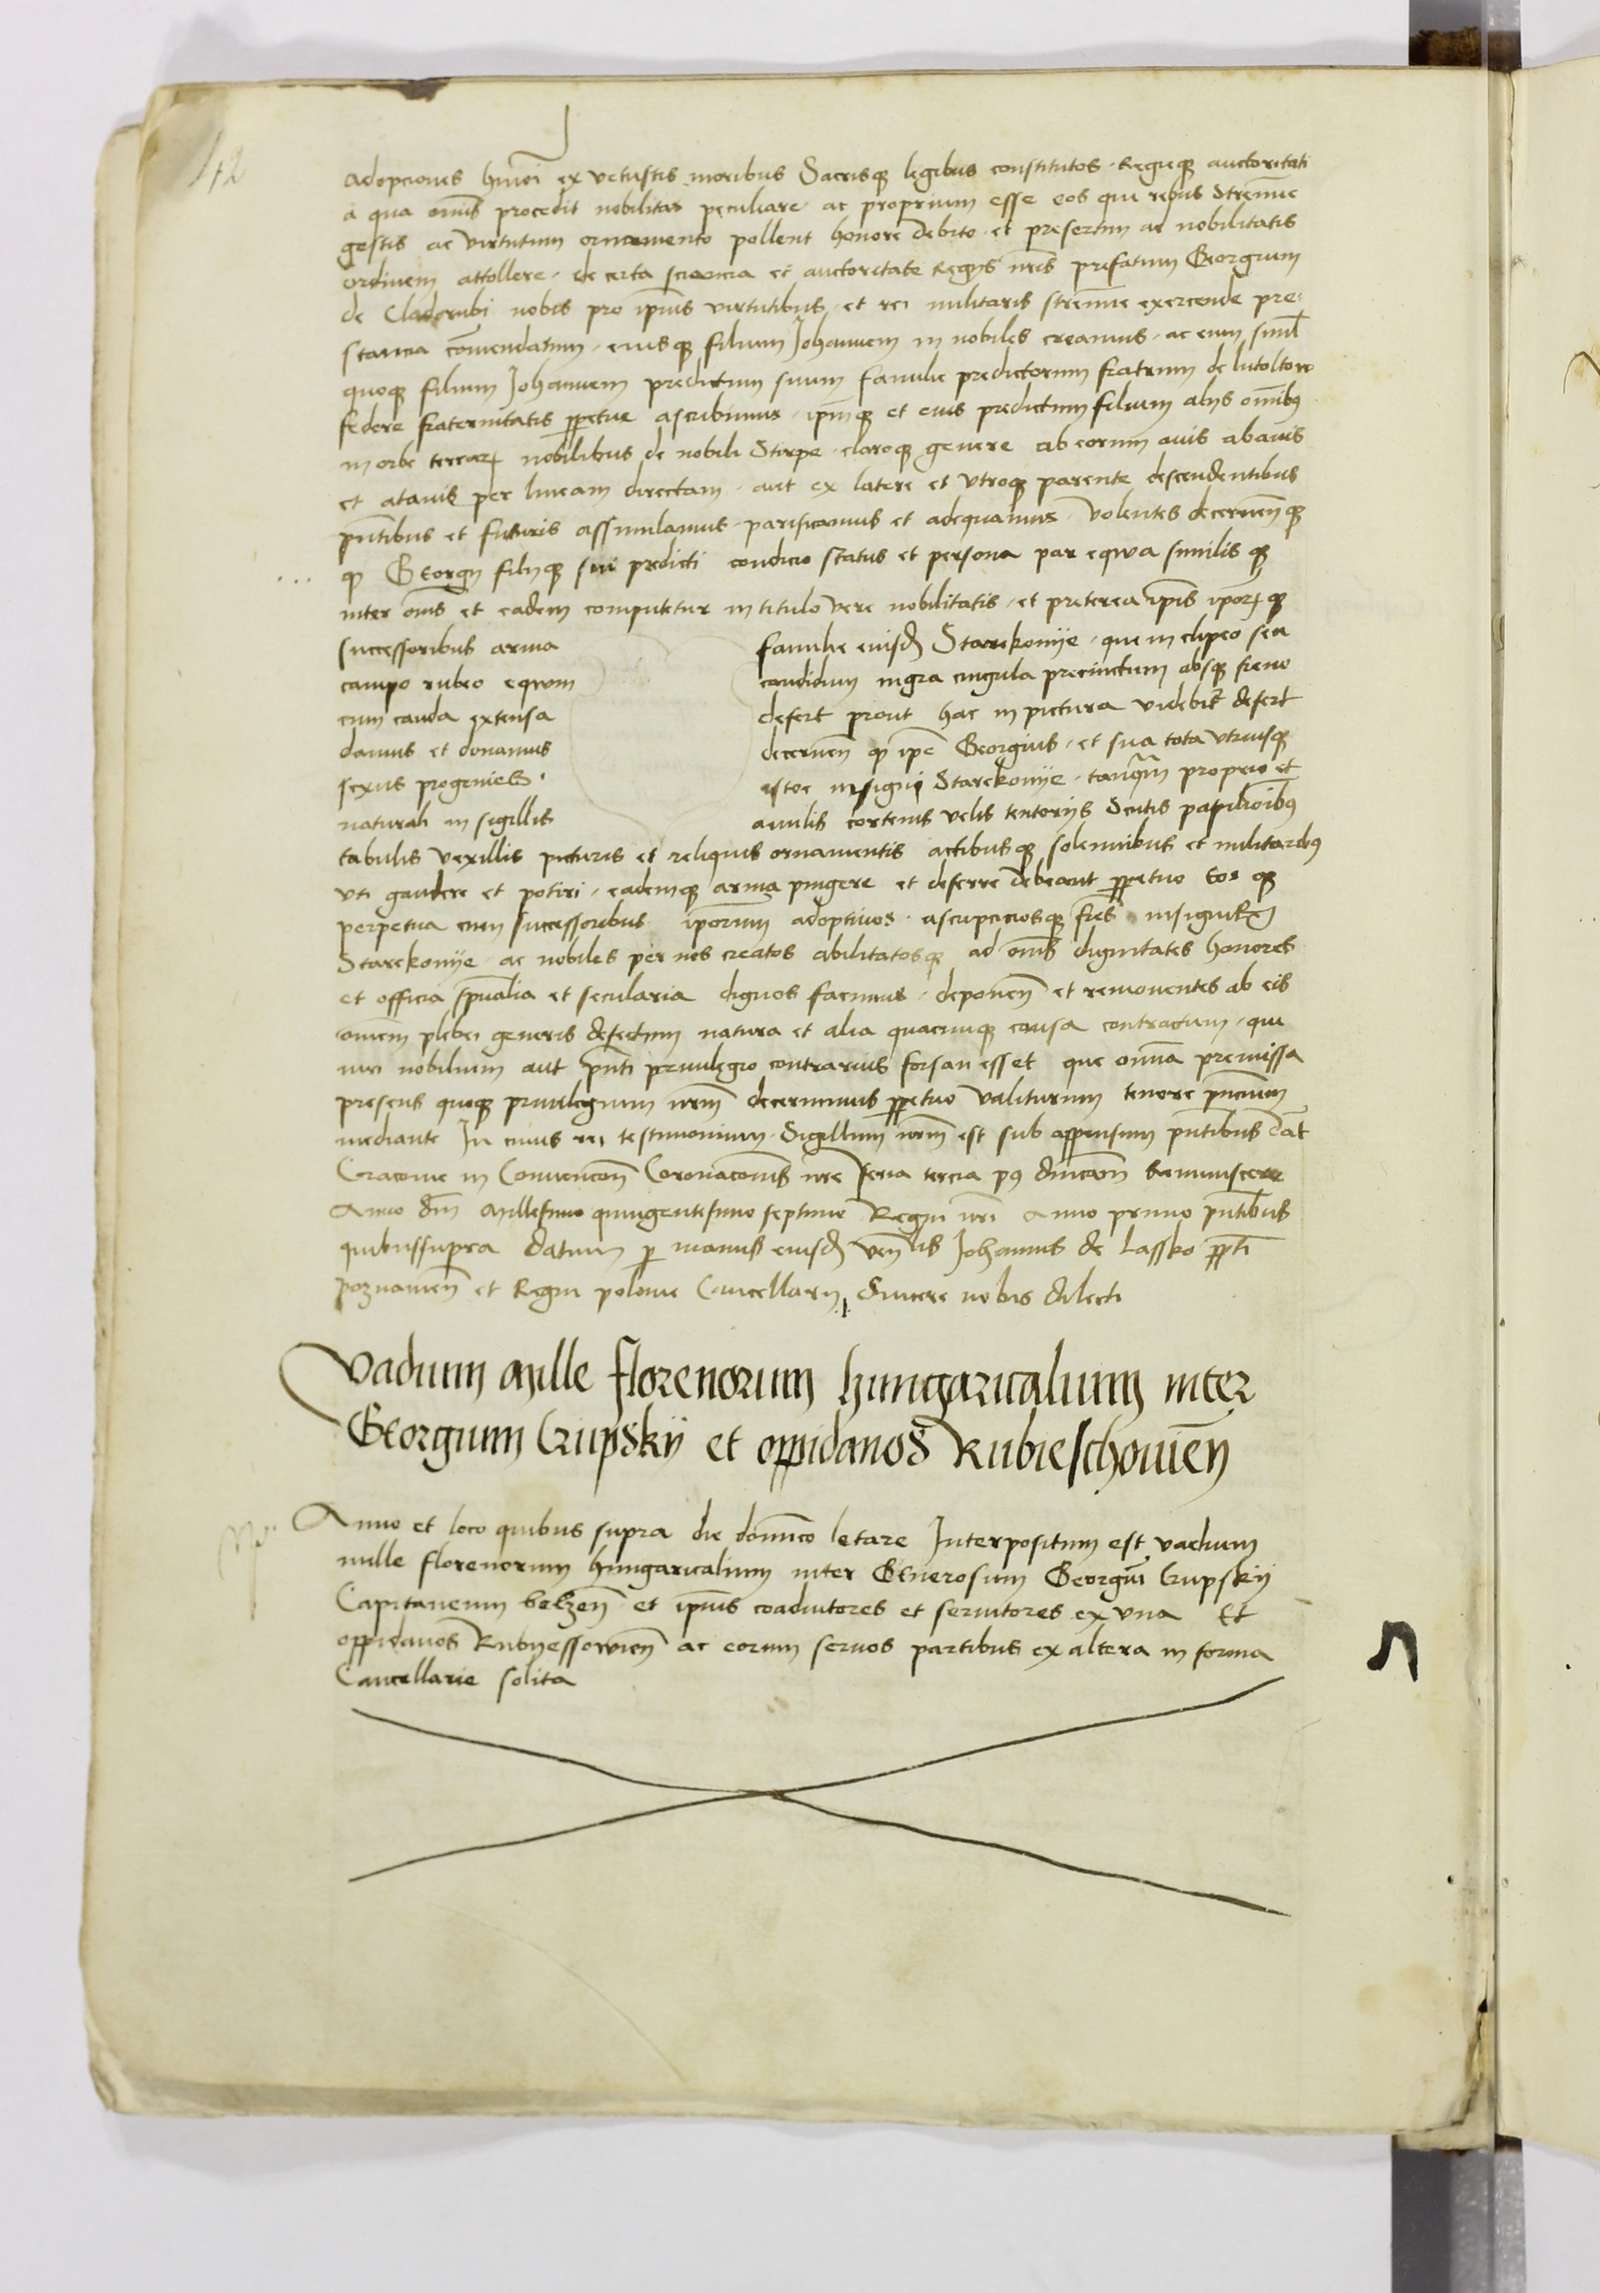 42
adopciones hmoi ex vetustis moribus Sacrisq legibus constitutos Regieq auctoritati
a qua omis procedit nobilitas peculiare ac proprium esse eos qui rebus strennue
gestis ac virtutum ornamento pollent honore debito et presertim ac nobilitatis
ordinem attollere de certa sciencia et auctoritate Regiis nris prefatum Georgium
de Cladorubi nobis pro ipius virtutibus et rei militaris strennue exercende pre
stancia comendatum eiusq filium Johannem in nobiles creamus ac eum simul
quoq filium Johannem predictum suum familie predictorum fratrum de lutoltow
federe fraternitatis ppetue ascribimus ipmq et eius predictum filium aliis omibus
in orbe terrar nobilibus de nobili Stirpe claroq genere ab eorum avis abavis
et atavis per lineam directam aut ex latere et utroq parente descendentibus
pntibus et futuris assimulamus parificamus et adequamus volentes decernen q
q Georgii filiiq sui predicti condicio status et persona par eqwa similis q
inter omis et eadem computetur in titulo vere nobilitatis et preterea ipis iporq
successoribus arma familie eiusd Starekonye que in clipeo seu
campo rubeo eqwom candidum nigra cingula precinctum absq freno
cum cauda extensa defert prout hac in pictura videbit defert
damus et donamus decernen q ipe Georgius et sua tota utriusq
sexus progenies istoc insigni Starekonye tanqm proprio et
naturali in sigillis anulis cortenis velis tentoriis Scutis papilioibus
tabulis vexillis picturis et reliquis ornamentis actibusq solennibus et militaribus
uti gaudere et potiri eademq arma pingere et deferre debeant ppetuo Eos q
perpetua cum successoribus iporum adoptivos ascripticiosq fres
Starekonye ac nobiles per nos creatos abilitatosq ad omis dignitates honores
et officia spualia et secularia dignos facimus deponen et removentes ab eis
omem plebei generis defectum natura et alia quacunq causa contractum qui
iuri nobilium aut pnti privilegio contrarius forsan esset que omia premissa
presens quoq privilegium nrm decernimus ppetuo valiturum tenore pncium
mediante In cuius rei testimonium Sigillum nrm est sub appensum pntibus Dat
Cracovie in Convencon Coronaconis nre feria tercia p9 dnicam Reminiscere
Anno dni Millesimo quingentesimo septimo Regni nri Anno primo pntibus
quibussupra datum p manus eiusd ven Johannis de Lassko ppti
poznanien et Regni polonie Cancellarii Sincere nobis dilecti
Vadium Mille florenorum hungaricalium inter
Georgium Crupsky et oppidanos Rubieschovien
Anno et loco quibus supra die domico letare Interpositum est vadium
mille florenorum hungaricalium inter Generosum Georgium Crupskii
Capitaneum belzen et ipius coadiutores et servitores ex una Et
oppidanos Rubyessowien ac eorum servos partibus ex altera in forma
Cancellarie solita